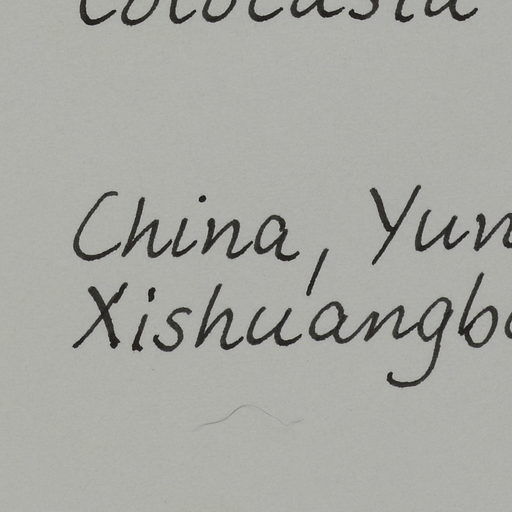 Colocasia
China, Yun
Xishuangb